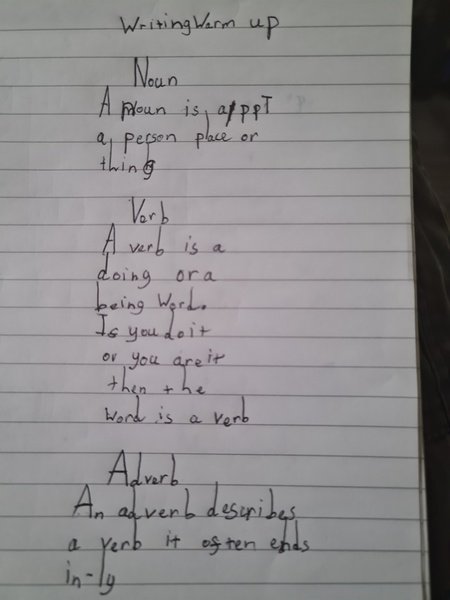 Writing Warm up
Noun
A Noun is a/ppT
a person place or
thing
Verb
A verb is a
doing or a
being Word.
Is you do it
or you are it
then the
word is a verb
Adverb
An adverb describes
a verb it often ends
in-ly